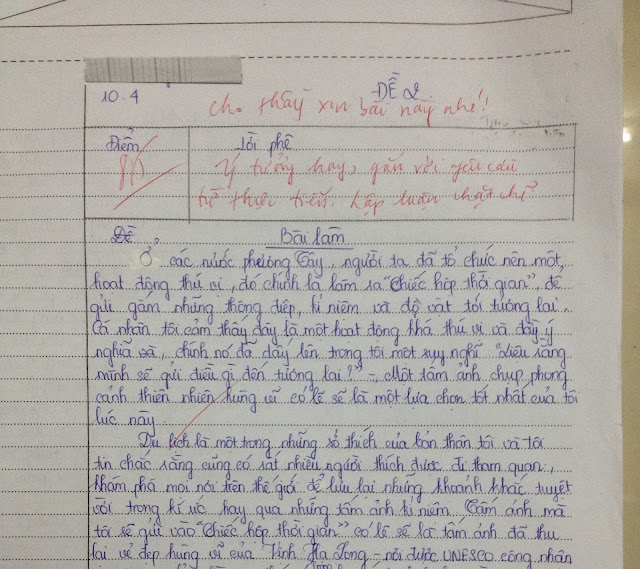 ĐỀ 2
10.4
cho thầy xin bài này nhé!
Điểm
Lời phê
Ý tưởng hay, gắn với yêu cầu
từ thực tiễn. Lập luận chặt chẽ
Đề
Bài làm
Ở các nước phương Tây, người ta đã tổ chức nên một
hoạt động thú vị, đó chính là làm ra "Chiếc hộp thời gian", để
gửi gắm những thông điệp, kỉ niệm và đồ vật tới tương lai.
Cá nhân tôi cảm thấy đây là một hoạt động khá thú vị và đầy ý
nghĩa và, chính nó đã dấy lên trong tôi một suy nghĩ "Liệu rằng
mình sẽ gửi điều gì đến tương lai?" - Một tấm ảnh chụp phong
cảnh thiên nhiên hùng vĩ có lẽ sẽ là một lựa chọn tốt nhất của tôi
lúc này.
Du lịch là một trong những sở thích của bản thân tôi và tôi
tin chắc rằng cũng có rất nhiều người thích được đi tham quan,
khám phá mọi nơi trên thế giới để lưu lại những khoảnh khắc tuyệt
vời trong kí ức hay qua những tấm ảnh kỉ niệm. Tấm ảnh mà
tôi sẽ gửi vào "Chiếc hộp thời gian" có lẽ sẽ là tấm ảnh đã thu
lại vẻ đẹp hùng vĩ của Vịnh Hạ Long - nơi được UNESCO công nhận